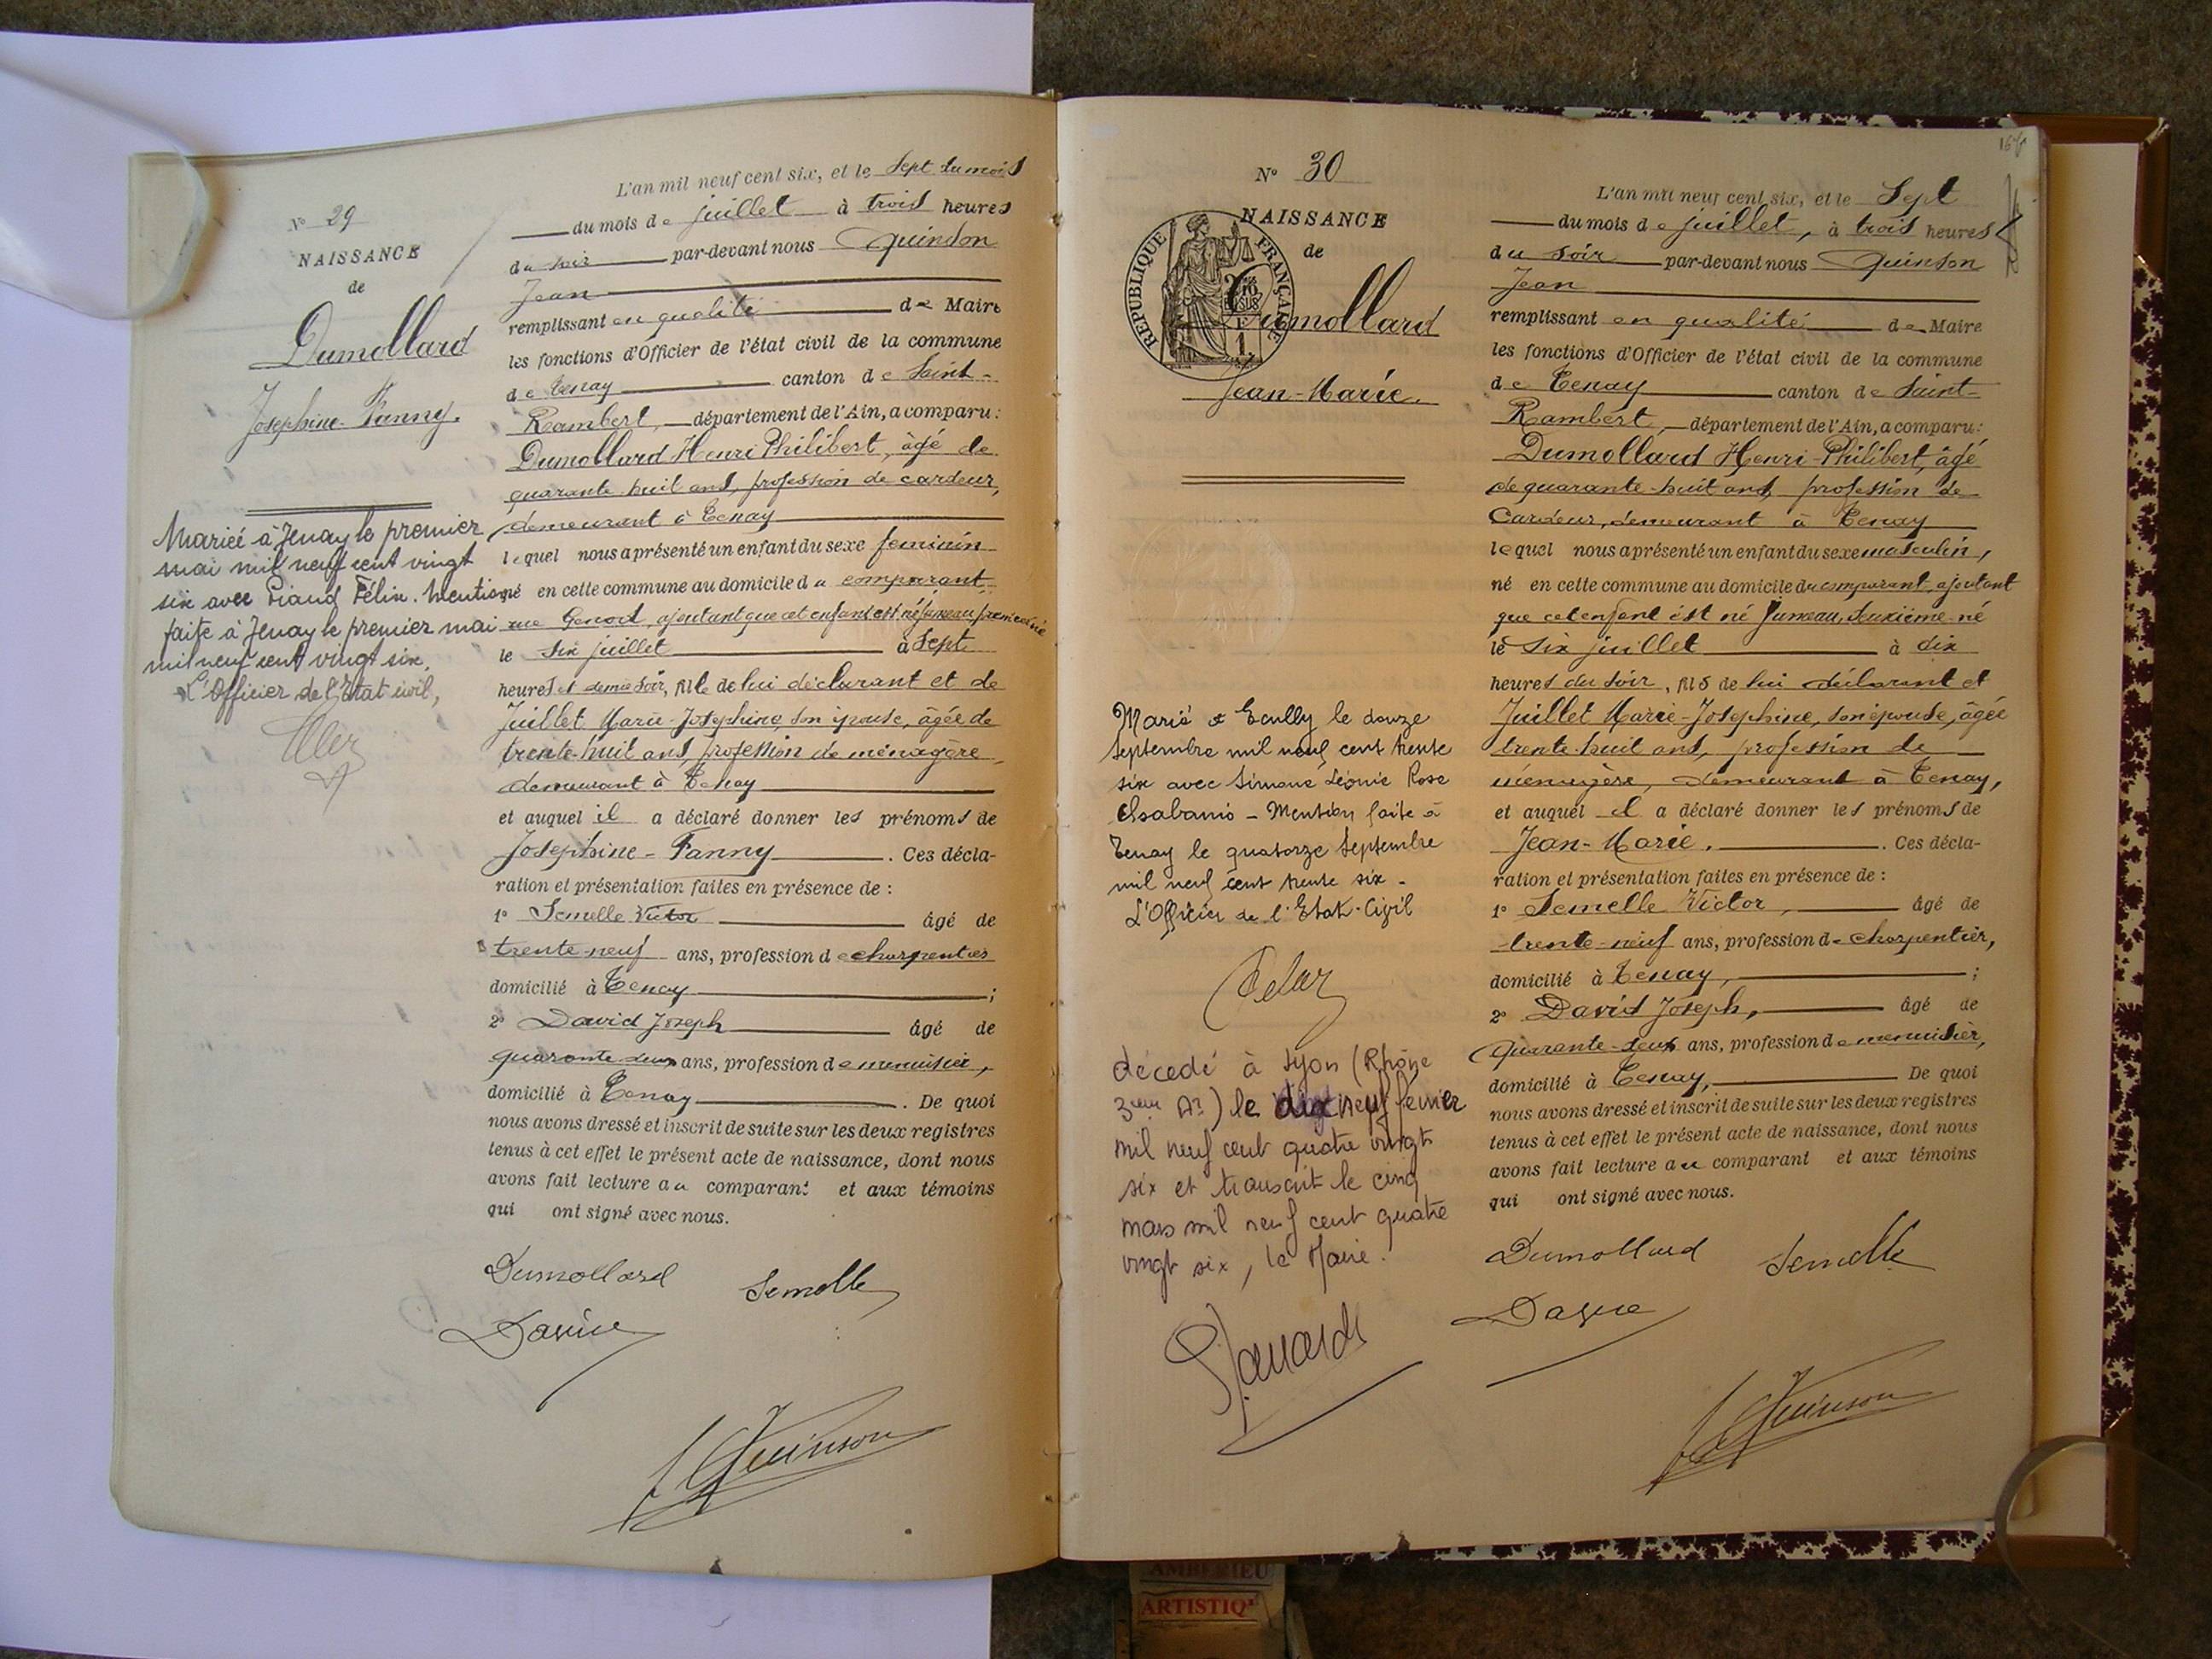 N° 29
NAISSANCE
de
Dumollard
Josephine-Fanny.
Mariée à Tenay le premier
mai mil neuf cent vingt
six avec Félix. Mention
faite à Tenay le premier mai
mil neuf cent vingt six.
L'Officier de l'Etat civil,
L'an mil neuf cent six, et le sept du mois
du mois de juillet à trois heures
du soir par-devant nous Quinson
Jean
remplissant en qualité de Maire
les fonctions d'Officier de l'état civil de la commune
de Tenay canton de Saint-
Rambert, département de l'Ain, a comparu:
Dumollard Henri Philibert, âgé de
quarante-huit ans, profession de cardeur,
demeurant à Tenay
lequel nous a présenté un enfant du sexe feminin
né en cette commune au domicile du comparant,
rue Genod, ajoutant que cet enfant est né jumeau premier né
le six juillet à sept
heures et demie soir, fille de lui déclarant et de
Juillet Marie-Josephine, son épouse, âgée de
trente-huit ans, profession de ménagère,
demeurant à Tenay
et auquel il a déclaré donner les prénoms de
Josephine-Fanny. Ces décla-
ration et présentation faites en présence de :
1° Semelle Victor âgé de
trente-neuf ans, profession de charpentier
domicilié à Tenay ;
2° David Joseph âgé de
quarante-deux ans, profession de menuisier,
domicilié à Tenay. De quoi
nous avons dressé et inscrit de suite sur les deux registres
tenus à cet effet le présent acte de naissance, dont nous
avons fait lecture au comparant et aux témoins
qui ont signé avec nous.
Dumollard Semelle
David
Quinson
N° 30
NAISSANCE
de
REPUBLIQUE FRANÇAISE
Dumollard
Jean-Marie.
Marié à Ecully le douze
septembre mil neuf cent trente
six avec Simone Léonie Rose
Mention faite à
Tenay le quatorze Septembre
mil neuf cent trente six -
L'Officier de l'Etat-Civil
décédé à Lyon (Rhône
3eme Ar) le dix neuf février
mil neuf cent quatre vingt
six et transcrit le cinq
mars mil neuf cent quatre
vingt six, le Maire.
L'an mil neuf cent six, et le Sept
du mois de juillet, à trois heures
du soir par-devant nous Quinson
Jean
remplissant en qualité de Maire
les fonctions d'Officier de l'état civil de la commune
de Tenay canton de Saint-
Rambert, département de l'Ain, a comparu:
Dumollard Henri-Philibert, âgé
de quarante-huit ans, profession de
Cardeur, demeurant à Tenay
lequel nous a présenté un enfant du sexe masculin,
né en cette commune au domicile du comparant, ajoutant
que cet enfant est né Jumeau, deuxième-né
le six juillet à dix
heures du soir, fils de lui déclarant et
Juillet Marie-Josephine, son épouse, âgée
trente-huit ans, profession de
ménagère, demeurant à Tenay,
et auquel il a déclaré donner les prénoms de
Jean-Marie. Ces décla-
ration et présentation faites en présence de :
1° Semelle Victor, âgé de
trente-neuf ans, profession de charpentier,
domicilié à Tenay, ;
2° David Joseph, âgé de
quarante-deux ans, profession de menuisier,
domicilié à Tenay, De quoi
nous avons dressé et inscrit de suite sur les deux registres
tenus à cet effet le présent acte de naissance, dont nous
avons fait lecture au comparant et aux témoins
qui ont signé avec nous.
Dumollard Semelle
David
Quinson
AMBERIEU
ARTISTIQ